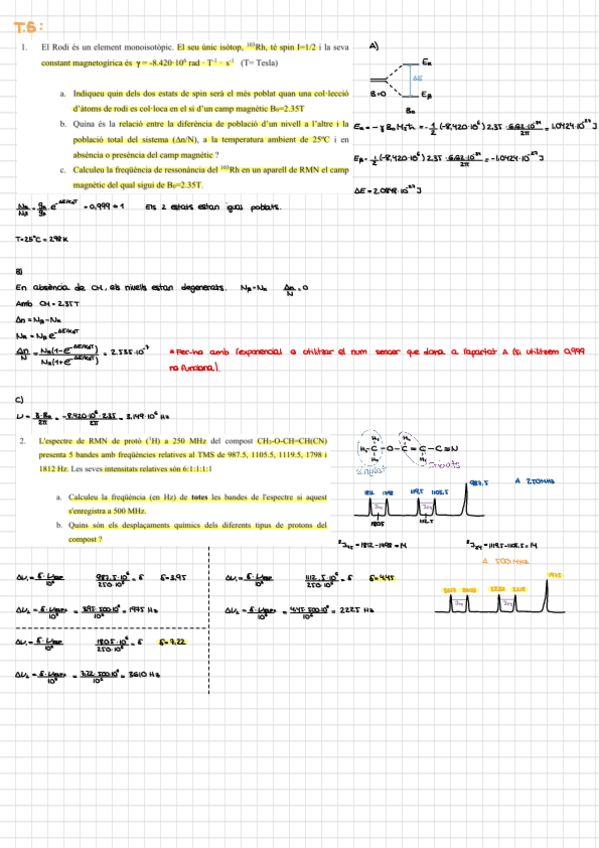 T.5:
1. El Rodi és un element monoisotòpic. El seu únic isòtop, ¹⁰³Rh, té spin I=1/2 i la seva
constant magnetogírica és γ = -8.420·10⁶ rad · T⁻¹ · s⁻¹ (T= Tesla)
a. Indiqueu quin dels dos estats de spin serà el més poblat quan una col·lecció
d'àtoms de rodi es col·loca en el si d'un camp magnètic B₀=2.35T
b. Quina és la relació entre la diferència de població d'un nivell a l'altre i la
població total del sistema (Δn/N), a la temperatura ambient de 25ºC i en
absència o presència del camp magnètic ?
c. Calculeu la freqüència de ressonància del ¹⁰³Rh en un aparell de RMN el camp
magnètic del qual sigui de B₀=2.35T.
A)
Eα
ΔE
B=0
Eβ
B₀
ΔE = 2,0848·10⁻²⁷ J
= 0,999 ≈ 1 Els 2 estats estan igual poblats.
T=25ºC = 298 K
B)
En absència de CH, els nivells estan degenerats. Nβ=Nα Δn/N = 0
Amb CH = 2.35T
Δn = Nβ - Nα
Nα = Nβ e^-ΔE/KBT
Δn/N = = 2.535·10⁻⁷
*Fer-ho amb l'exponencial o utilitzar el num sencer que dona a l'apartat A (si utilitzem 0,999
no funciona).
C)
= 3.149·10⁶ Hz
2. L'espectre de RMN de protó (¹H) a 250 MHz del compost CH₃-O-CH=CH(CN)
presenta 5 bandes amb freqüències relatives al TMS de 987.5, 1105.5, 1119.5, 1798 i
1812 Hz. Les seves intensitats relatives són 6:1:1:1:1
a. Calculeu la freqüència (en Hz) de totes les bandes de l'espectre si aquest
s'enregistra a 500 MHz.
b. Quins són els desplaçaments químics dels diferents tipus de protons del
compost ?
singulet
doblets
987.5
A 250MHz
1812 1798 1119.5 1105.5
1805 1112.5
= 1812-1798 = 14
= 1119.5-1105.5 = 14
A 500 MHz
987.5·10⁶/250·10⁶ = δ δ=3.95
= 3.95·500·10⁶/10⁶ = 1975 Hz
1112.5·10⁶/250·10⁶ = δ δ=4.45
= 4.45·500·10⁶/10⁶ = 2225 Hz
1805·10⁶/250·10⁶ = δ δ=7.22
= 7.22·500·10⁶/10⁶ = 3610 Hz